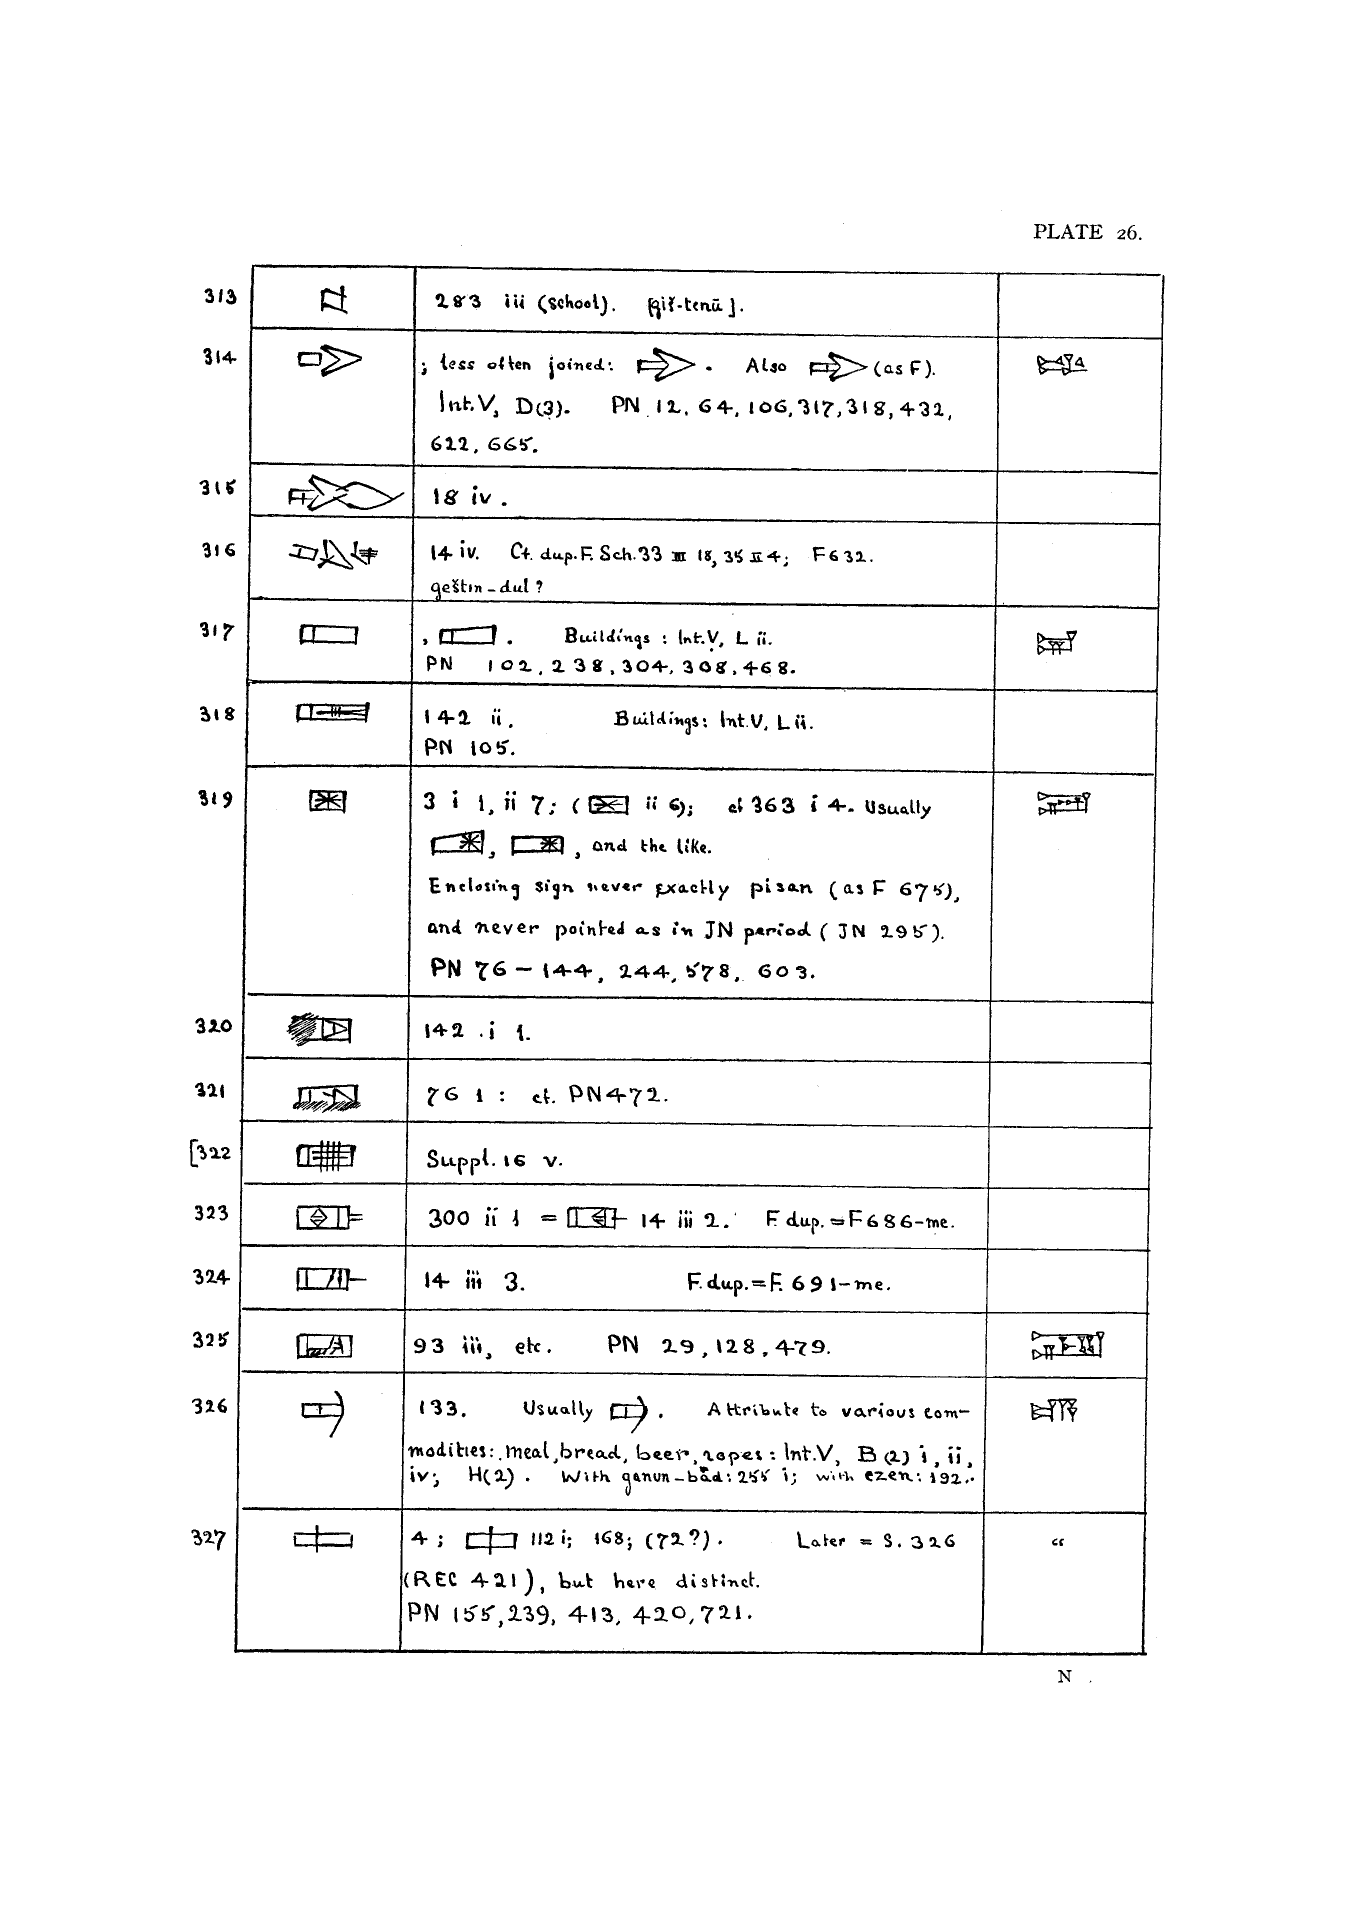 PLATE 26.
313 283 iii (school). [giš-tenû].
314 ; less often joined: . Also (as F).
Int.V, D(3). PN 12, 64, 106, 317, 318, 432,
622, 665.
315 18 iv.
316 14 iv. Cf. dup. F. Sch. 33 III 18, 35 II 4; F 632.
geštin-dul?
317 , . Buildings : Int.V, L ii.
PN 102, 238, 304, 308, 468.
318 142 ii. Buildings: Int.V, L ii.
PN 105.
319 3 i 1, ii 7; ( ii 6); cf 363 i 4. Usually
, , and the like.
Enclosing sign never exactly pisan (as F 675),
and never pointed as in JN period (JN 295).
PN 76-144, 244, 578, 603.
320 142 i 1.
321 76 1 : cf. PN 472.
[322 Suppl. 16 v.
323 300 ii 1 = 14 iii 2. F. dup. = F 686-me.
324 14 iii 3. F. dup. = F. 691-me.
325 93 iii, etc. PN 29, 128, 479.
326 133. Usually . Attribute to various com-
modities: meal, bread, beer, ropes: Int.V, B(2) i, ii,
iv; H(2). With ganun-bad: 255 i; with ezen: 192.
327 4; 112 i; 168; (72?). Later = S. 326 "
(REC 421), but here distinct.
PN 155, 239, 413, 420, 721.
N